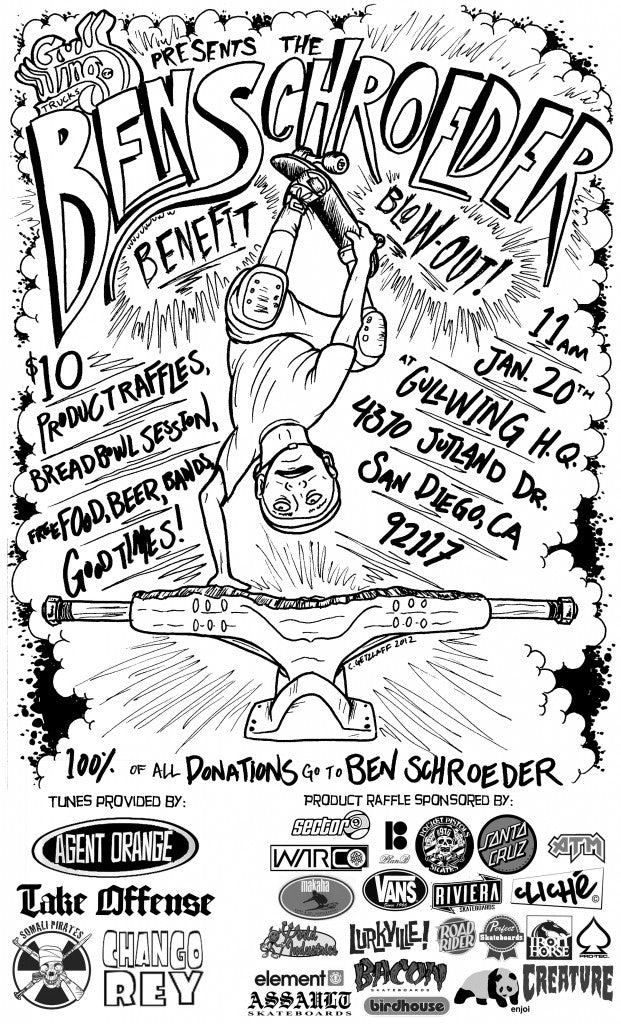 Gullwing
TRUCKS
PRESENTS THE
BEN SCHROEDER
BENEFIT
BLOW-OUT!
$10
PRODUCT RAFFLES,
BREAD BOWL SESSION,
FREE FOOD, BEER, BANDS,
GOOD TIMES!
11AM
JAN. 20TH
AT GULLWING H.Q.
4370 JUTLAND DR.
SAN DIEGO, CA
92117
C. GETZLAFF 2012
100% OF ALL DONATIONS GO TO BEN SCHROEDER
TUNES PROVIDED BY:
AGENT ORANGE
Take Offense
SOMALI PIRATES
CHANGO
REY
PRODUCT RAFFLE SPONSORED BY:
sector 9
Plan B
POCKET PISTOLS
SKATES
SANTA
CRUZ
ATM
WARCO
makaha
VANS
RIVIERA
SKATEBOARDS
CLICHÉ ©
World
Industries
LURKVILLE!
ROAD
RIDER
Perfect
Skateboards
IRON
HORSE
PRO-TEC.
element
BACON
SKATEBOARDS
enjoi
CREATURE
ASSAULT
SKATEBOARDS
birdhouse